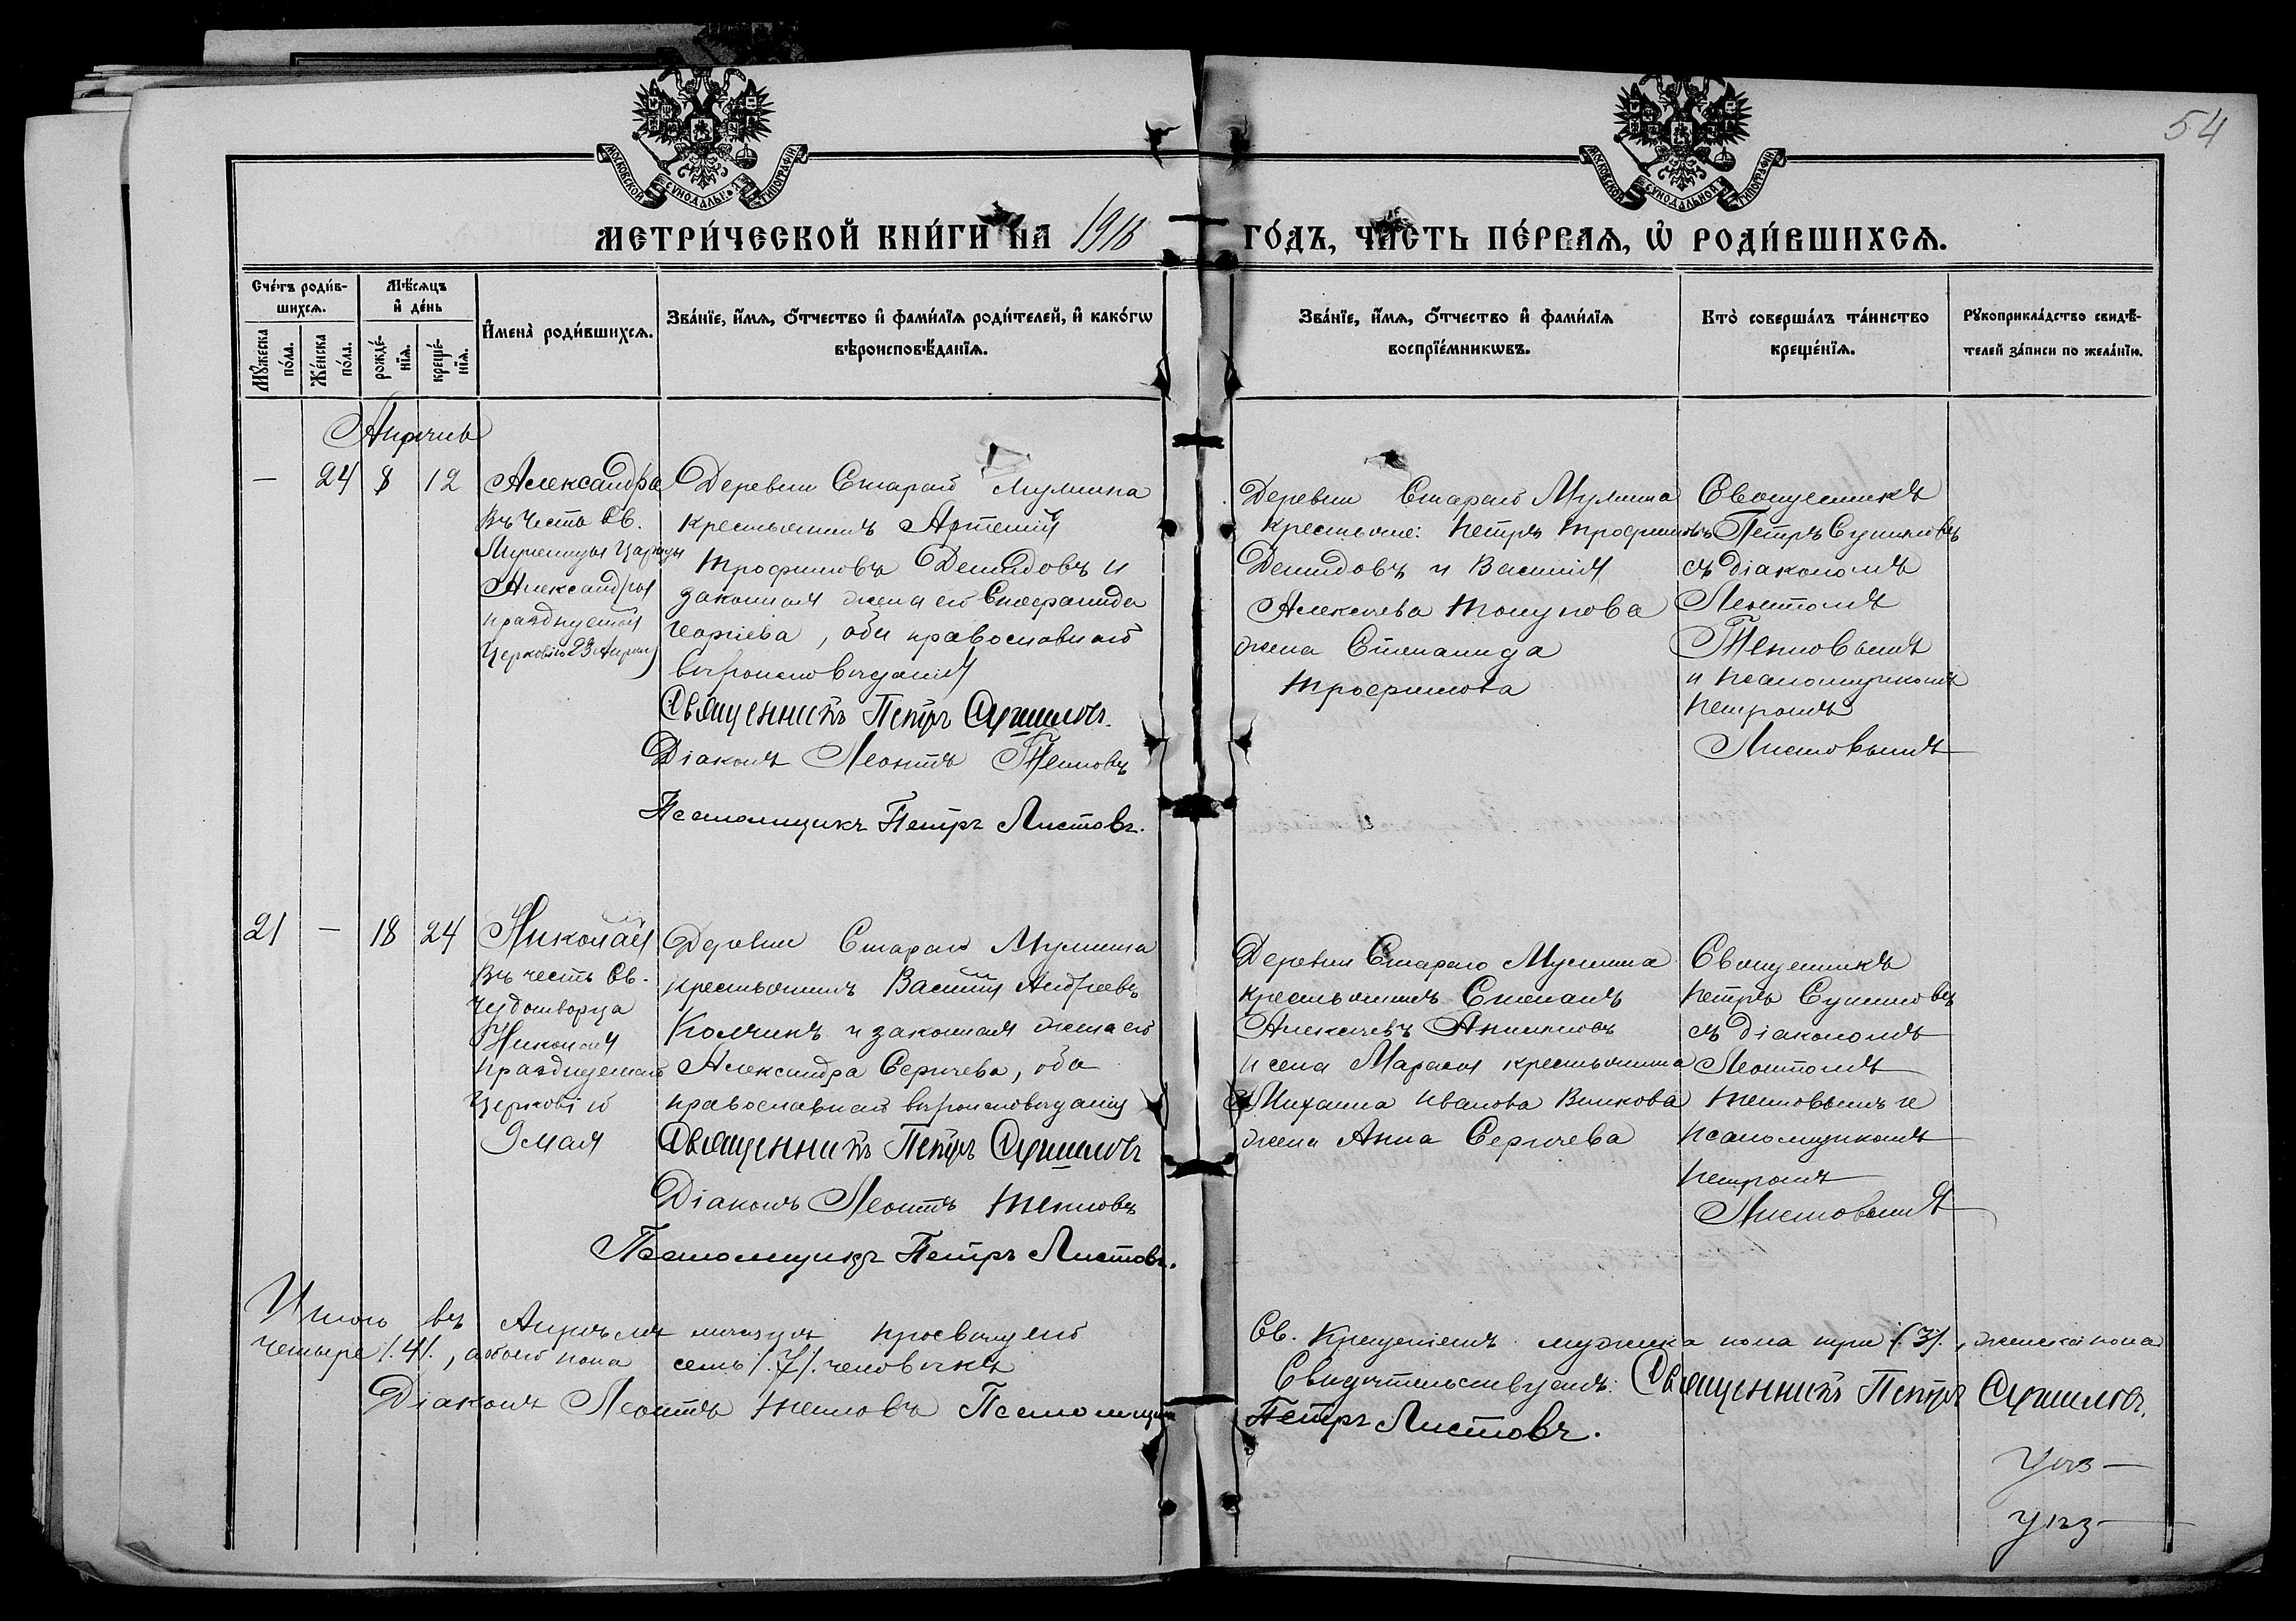 54
МОСКОВСКОЙ СѴНОДАЛЬНОЙ ТИПОГРАФІИ
МОСКОВСКОЙ СѴНОДАЛЬНОЙ ТИПОГРАФІИ
МЕТРИ́ЧЕСКОЙ КНИ́ГИ НА 1916 ГО́ДЪ, ЧАСТЬ ПЕ́РВАЯ, Ѡ РОДИ́ВШИХСЯ.
Сче́тъ роди́в-
шихся.
Мѣ́сяцъ
и҆ де́нь
Мꙋ́жеска по́ла.
Же́нска по́ла.
рожде́-
нїя.
креще́-
нїя.
И҆мена̀ роди́вшихся.
Зва́нїе, и҆́мя, ѻ҆́тчество и҆ фами́лїя роди́телей, и҆ како́гѡ
вѣроисповѣ́данїя.
Зва́нїе, и҆́мя, ѻ҆́тчество и҆ фами́лїя
воспрїе́мникѡвъ.
Кто̀ соверша́лъ та́инство
креще́нїя.
Рꙋкоприкла́дство свидѣ́-
телей за́писи по жела́нїю.
Апрѣль
— 24 8 12
Александра
въ честь Св.
Мученицы Царицы
Александры
празднуемой
Церковію 23 Апрѣля
Деревни Стараго Мумина
крестьянинъ Артемій
Трофимовъ Демидовъ и
законная жена его
Георгіева, оба православнаго
вѣроисповѣданія
Священникъ Петръ Сушиловъ.
Діаконъ Леонтъ Тепловъ
Псаломщикъ Петръ Листовъ.
Деревни Стараго Мумина
крестьяне: Петръ Трофимовъ
Демидовъ и Василія
Алексѣева
жена Степанида
Трофимова
Священникъ
Петръ Сушиловъ
съ діакономъ
Леонтомъ
Тепловымъ
и псаломщикомъ
Петромъ
Листовымъ
21 — 18 24
Николай
въ честь Св.
Чудотворца
Николая
празднуемаго
Церковію
9 мая
Деревни Стараго Мумина
крестьянинъ Василій Андреевъ
Колчинъ и законная жена его
Александра Сергѣева, оба
православнаго вѣроисповѣданія
Священникъ Петръ Сушиловъ
Діаконъ Леонтъ Тепловъ
Псаломщикъ Петръ Листовъ.
Деревни Стараго Мумина
крестьянинъ Степанъ
Алексѣевъ
и села крестьянина
Михаила Иванова Волкова
жена Анна Сергѣева
Священникъ
Петръ Сушиловъ
съ діакономъ
Леонтомъ
Тепловымъ и
псаломщикомъ
Петромъ
Листовымъ
Итого въ Апрѣлѣ мѣсяцѣ просвѣщено Св. Крещеніемъ мужска пола три (3), женска пола
четыре (4), обоего пола семь (7) человѣкъ
Свидѣтельствуемъ: Священникъ Петръ Сушиловъ.
Діаконъ Леонтъ Тепловъ Псаломщикъ Петръ Листовъ.